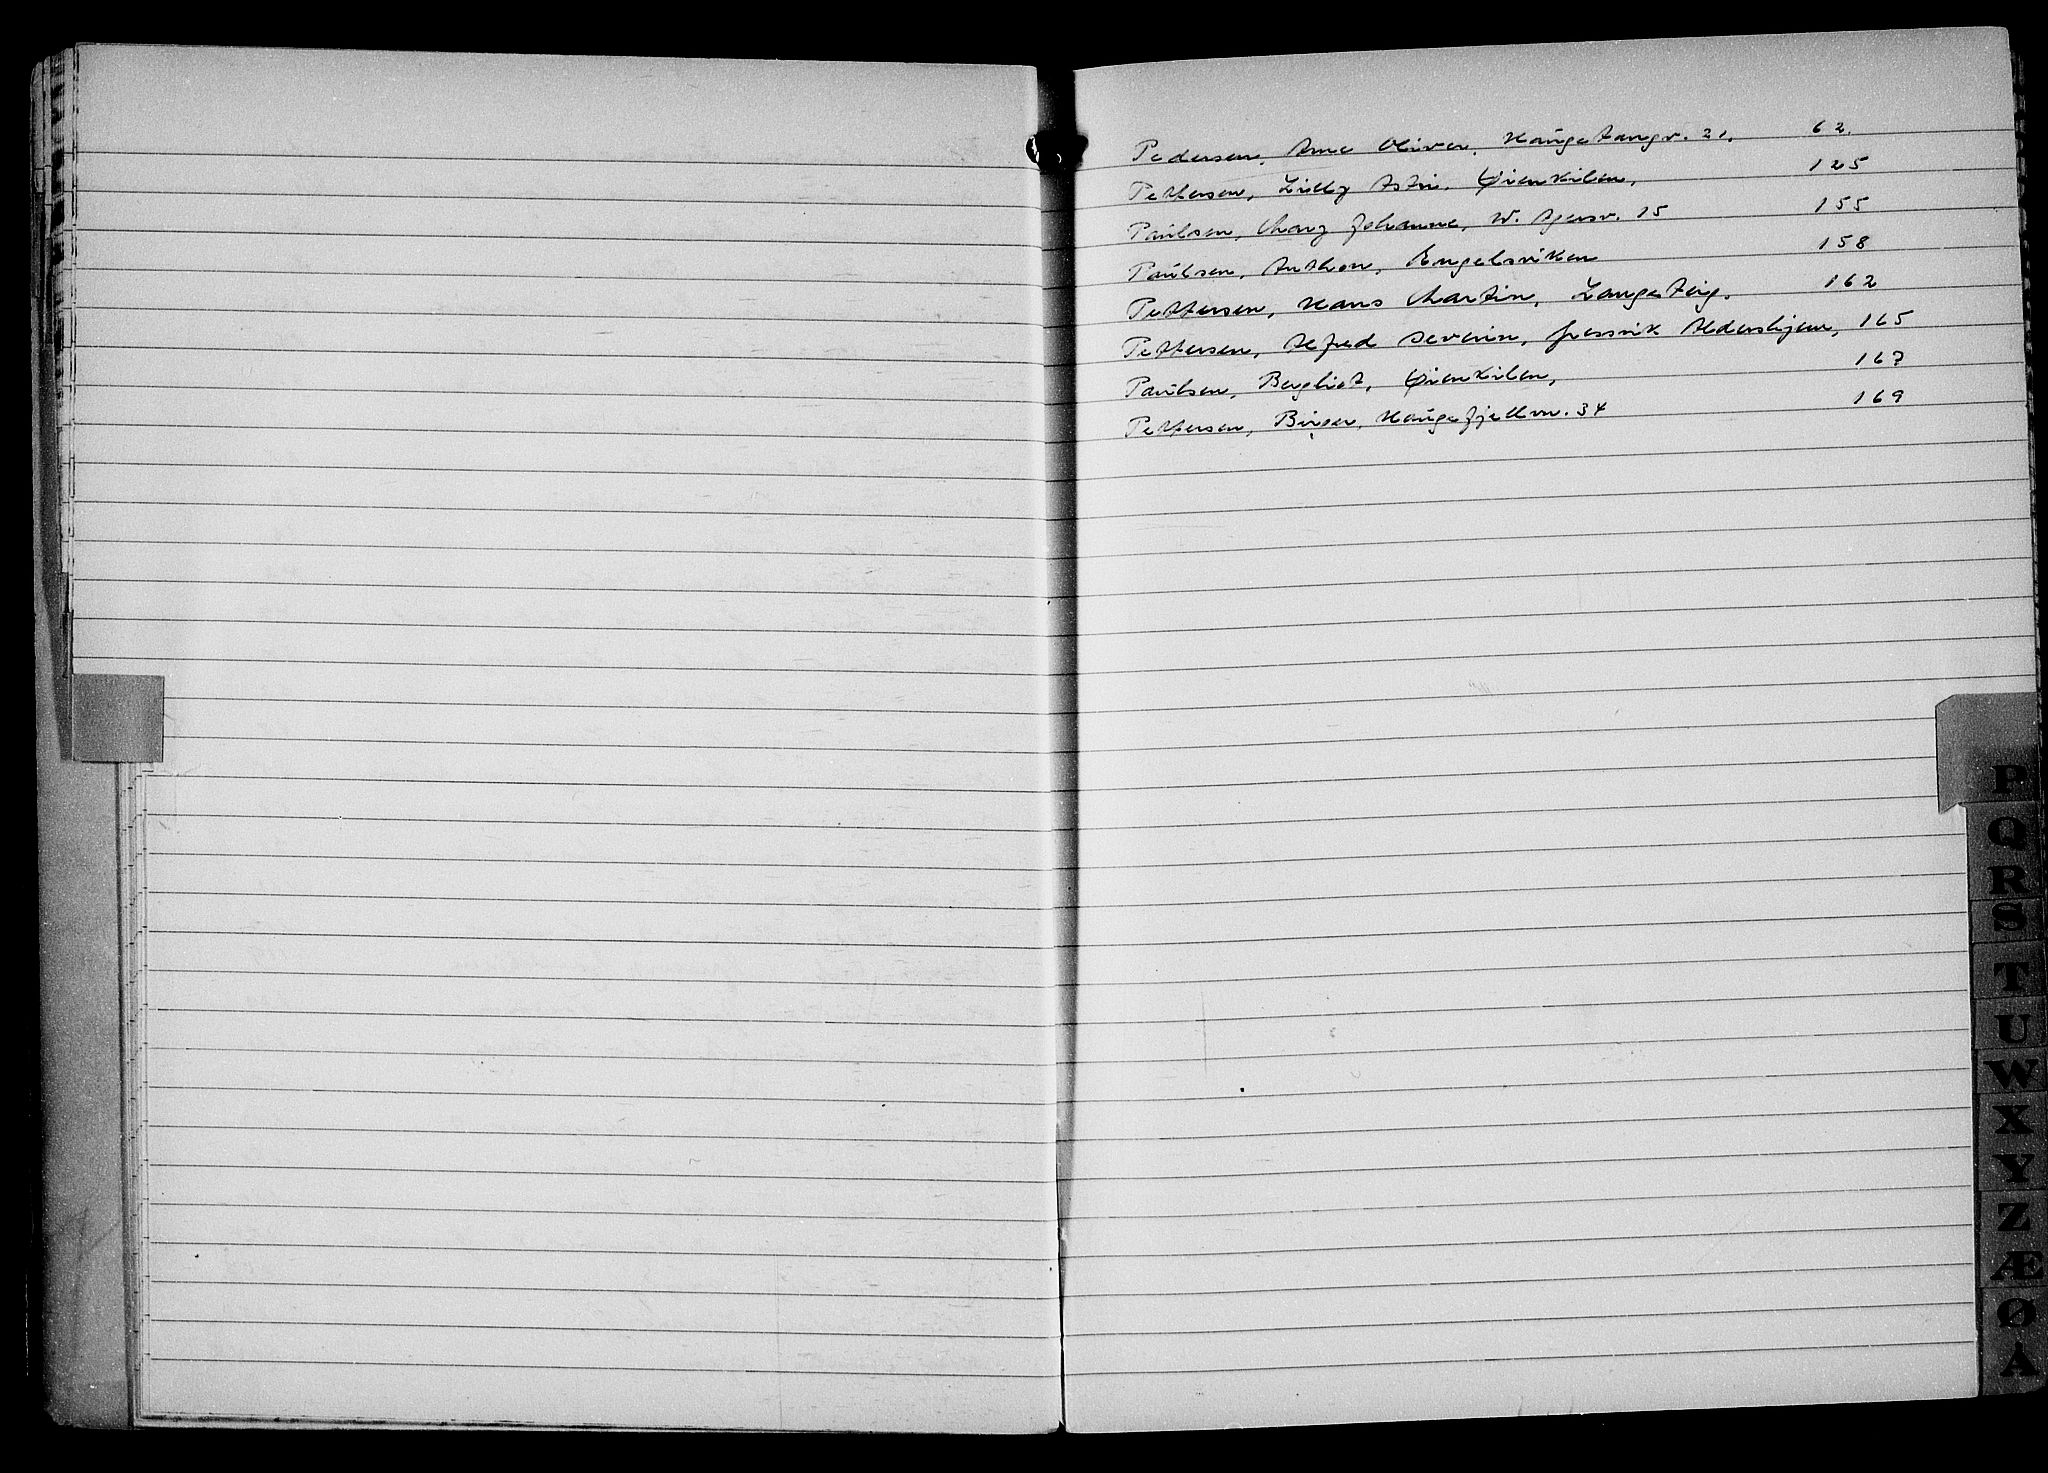 Pedersen, Arne Oliver, Haugetangv. 21. 62.
Pettersen, Lilly Astri. Øienkilen, 125
Paulsen, Mary Johanne, W. 15 155
Paulsen, Anthon, Engelsviken 158
Pettersen, Hans Martin, Langesteig. 162
Pettersen, Alfred Severin, Gressvik Aldershjem, 165
Paulsen, Bergliot, Øienkilen, 167
Pettersen, Birger, Haugefjellvn. 34 169
P
Q
R
S
T
U
W
X
Y
Z
Æ
Ø
Å